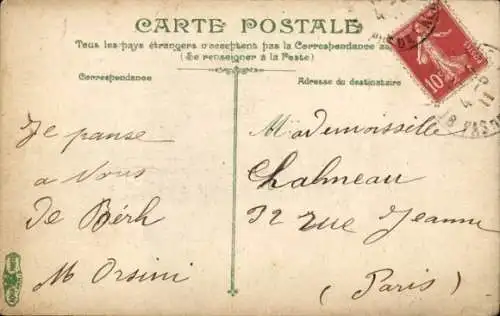 CARTE POSTALE
Tous les pays étrangers n'acceptent pas la Correspondance au
(Se renseigner à la Poste)
Correspondance
Adresse du destinataire
10c
Je panse
a Vous
De Bérk
M Orsini
Mademoissille
Chalmeau
32 rue Jeanne
(Paris)